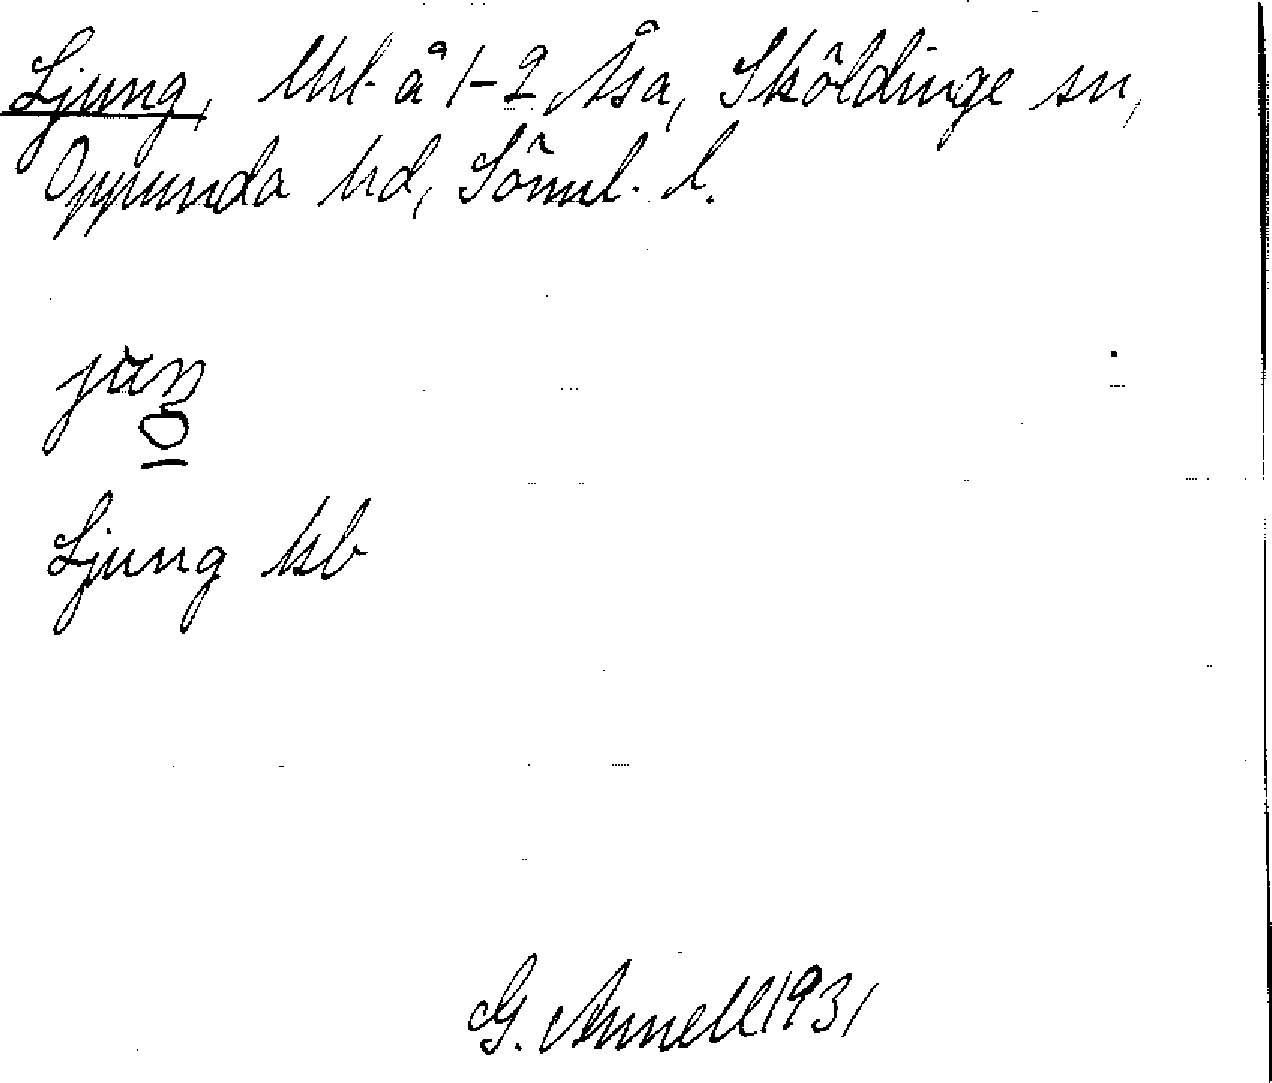 Ljung, Uhl. å 1-2 Åsa, Sköldinge sn,
Oppunda hd, Söml. l.
Ljung
G. Annell 1931